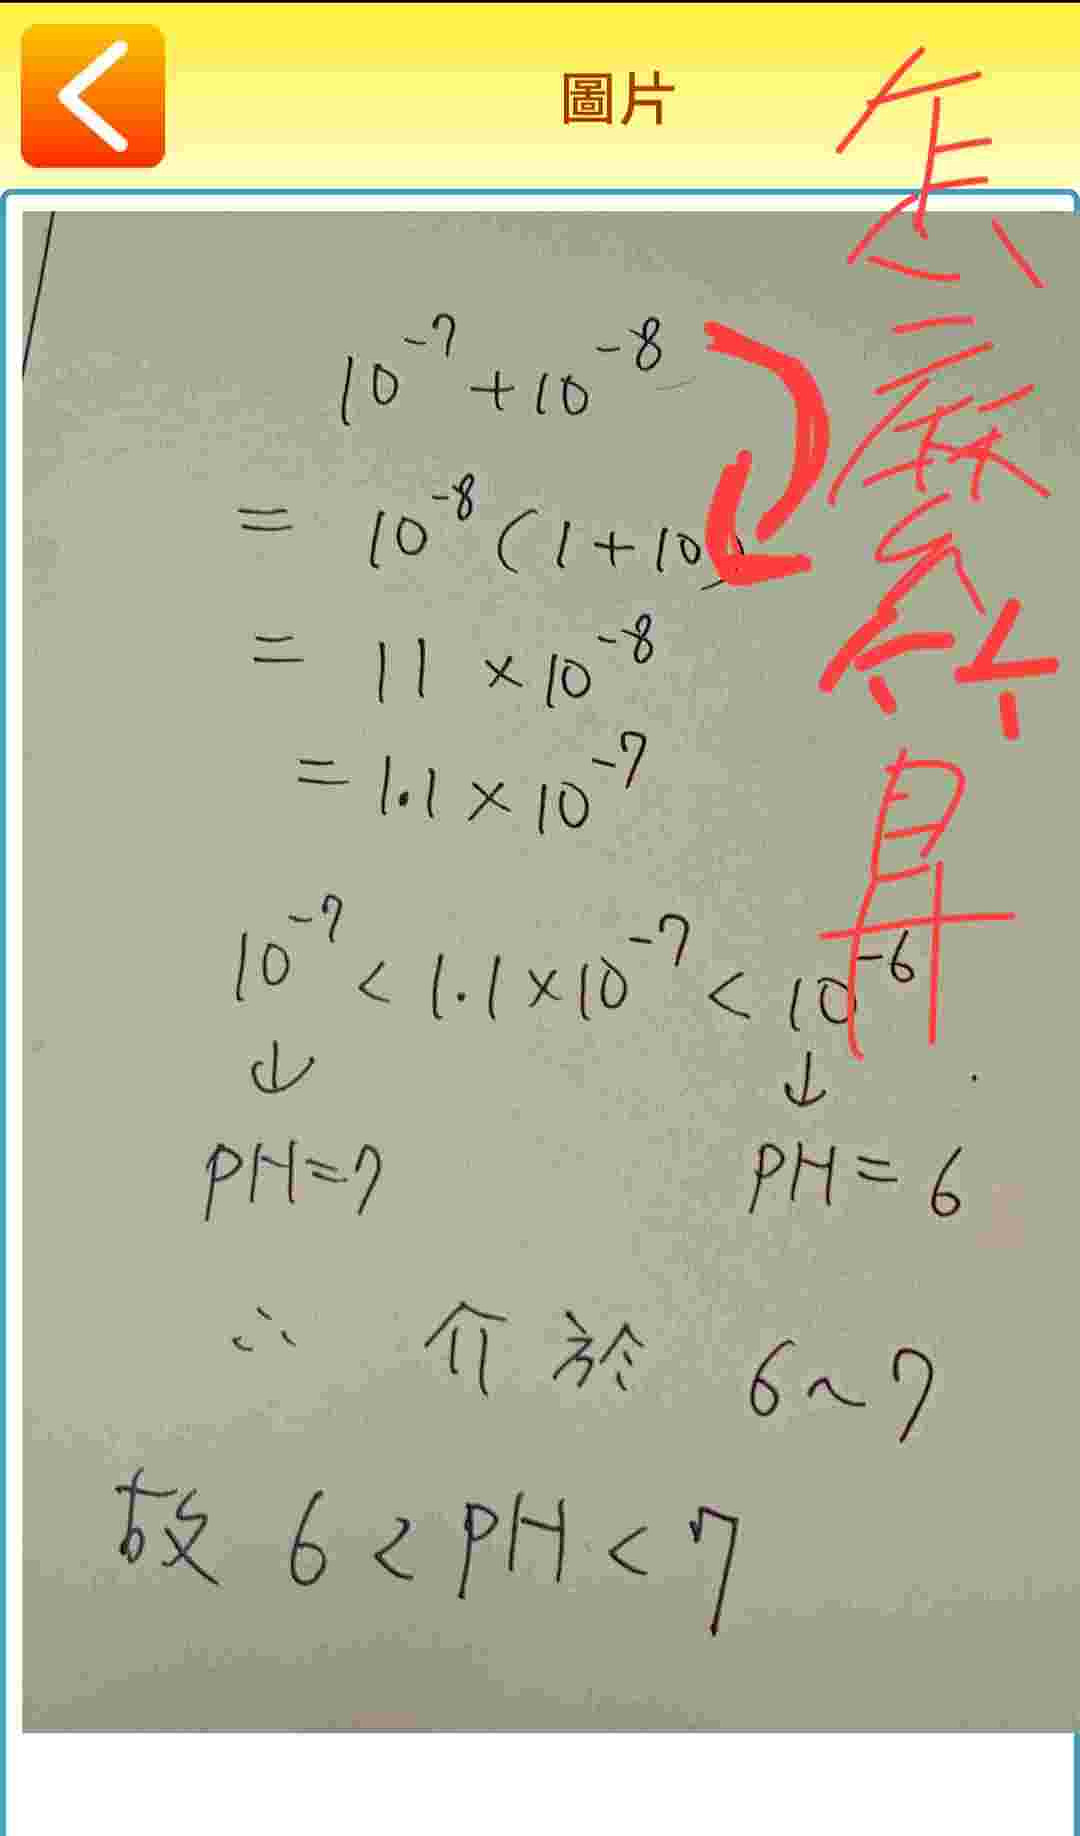 圖片
怎麼算
10⁻⁷+10⁻⁸
= 10⁻⁸(1+10)
= 11 × 10⁻⁸
= 1.1 × 10⁻⁷
10⁻⁷ < 1.1×10⁻⁷ < 10⁻⁶
↓ ↓
PH=7 PH=6
∴ 介於 6~7
故 6 < PH < 7